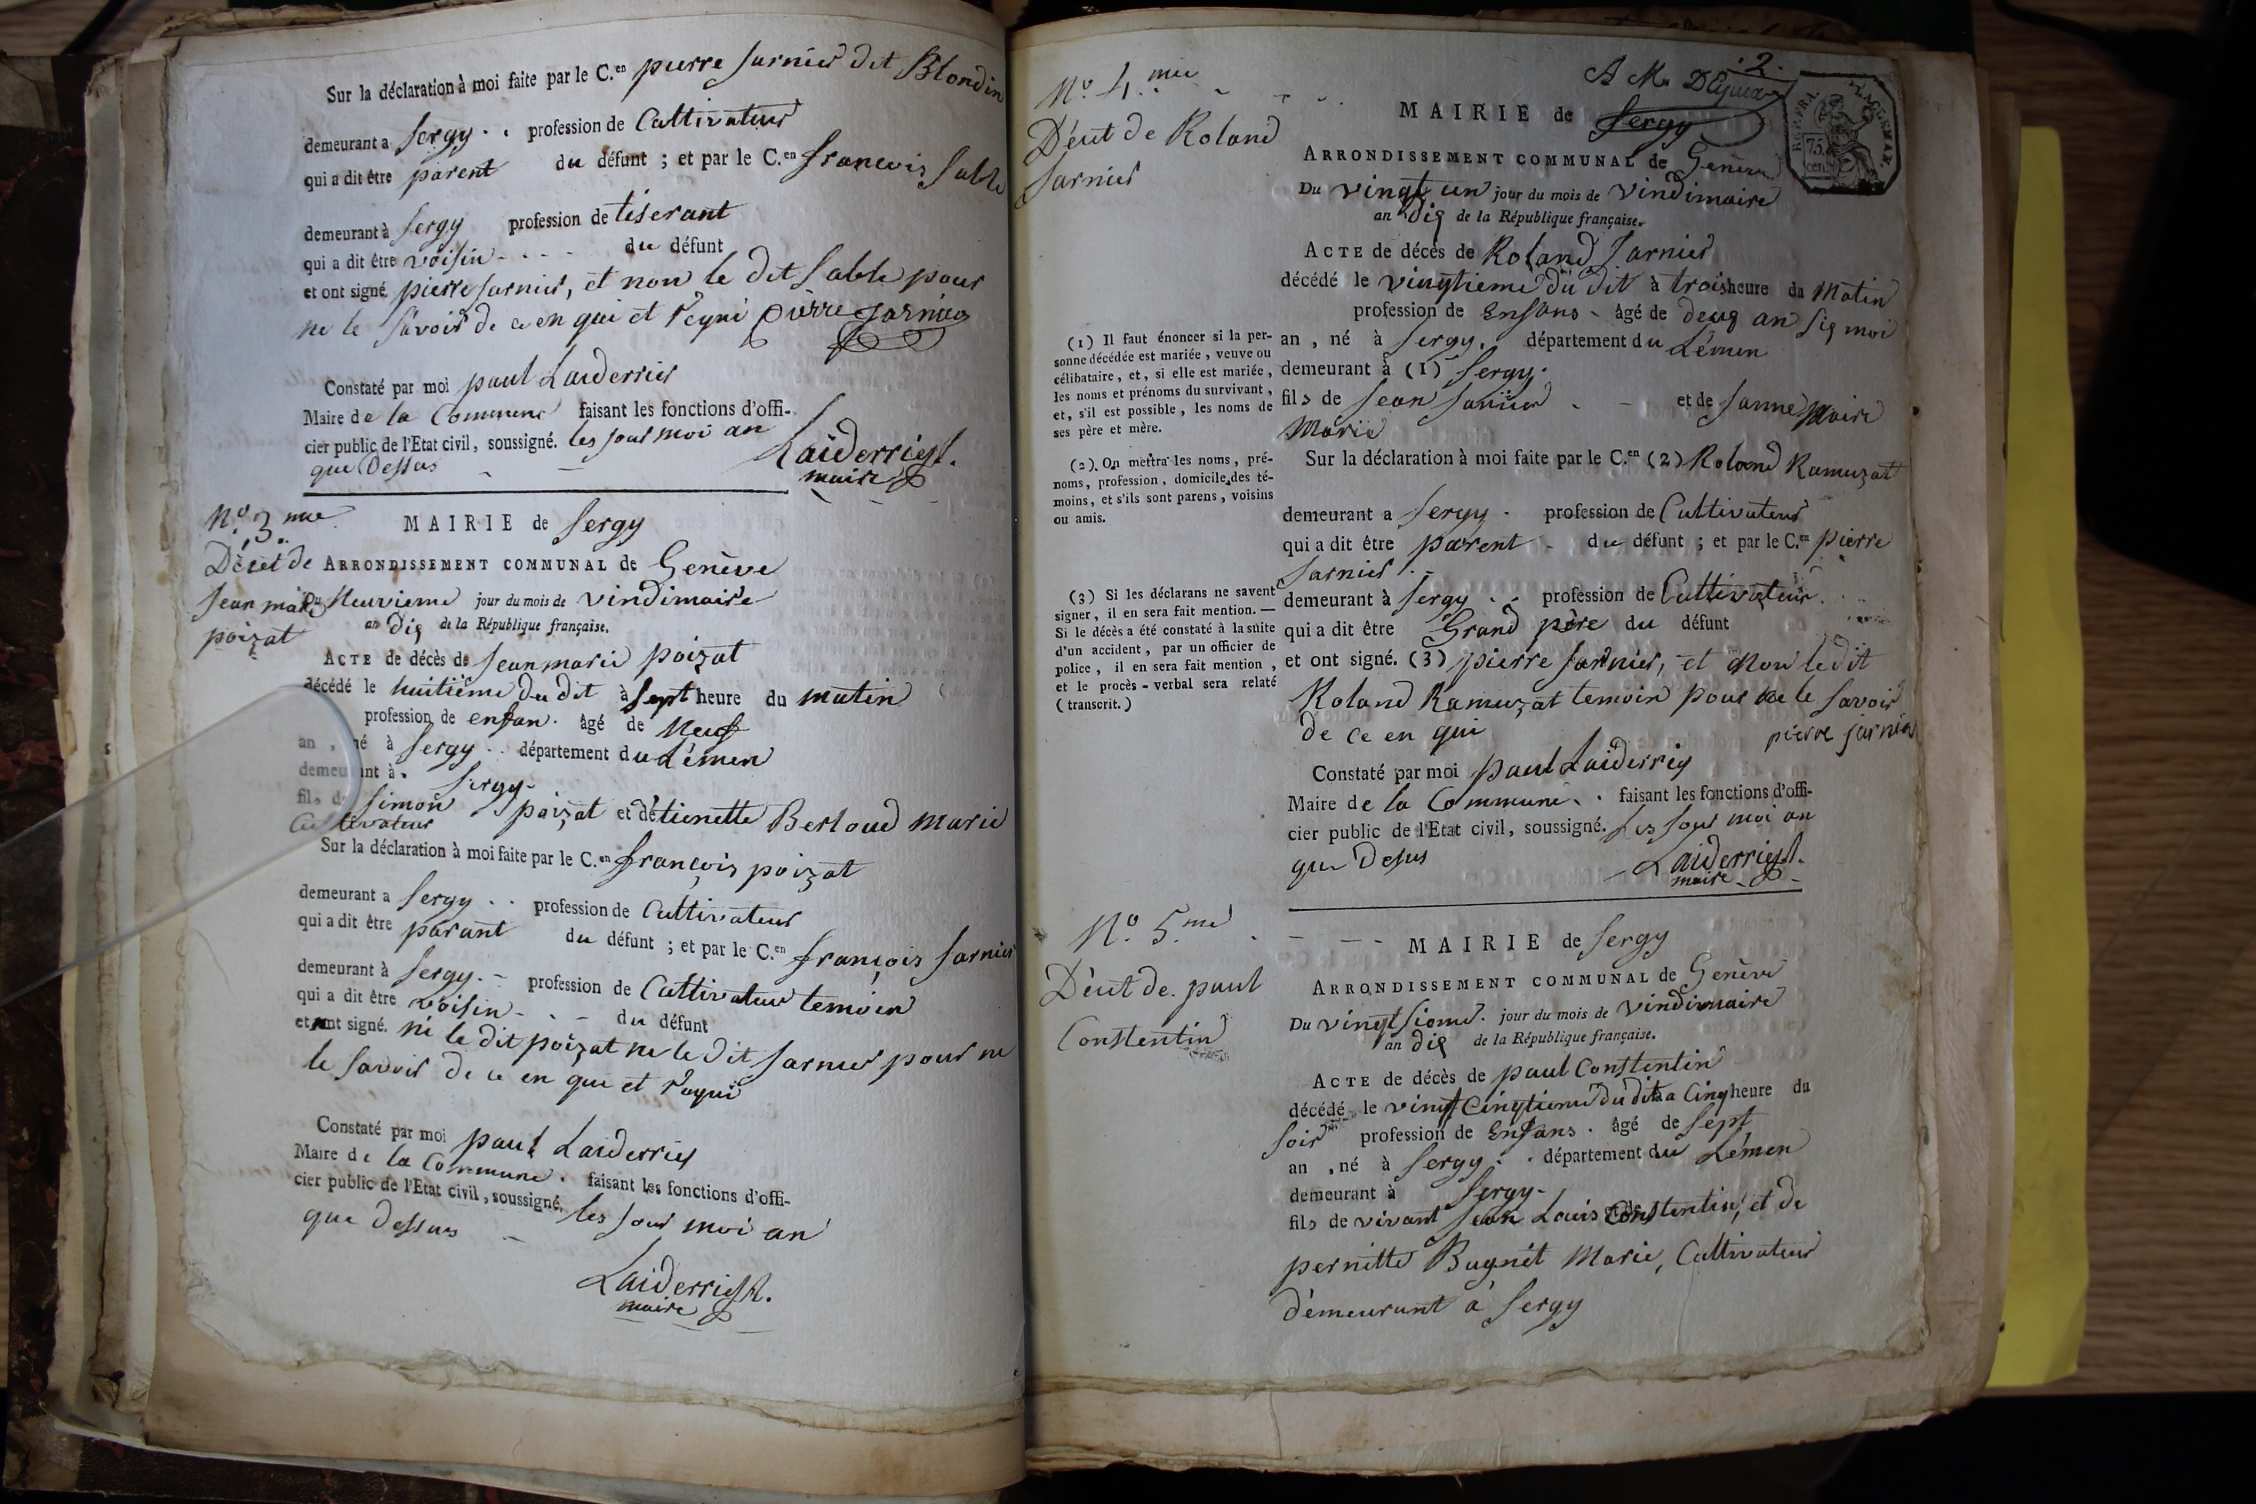 Sur la déclaration à moi faite par le C.en pierre Jarnier dit Blondin
demeurant a Sergy . . profession de Cultivateur
qui a dit être parent du défunt ; et par le C.en francois Sable
demeurant à Sergy profession de tiserant
qui a dit être voisin - . - - du défunt
et ont signé. pierre Jarnier, et non le dit Sable pour
ne le savoir de ce en qui et r'eqni pierre jarnier
Constaté par moi paul Laiderrier
Maire de la Commune faisant les fonctions d'offi-
cier public de l'Etat civil, soussigné. les jour moi an
que Dessus
Laiderrier
maire
N.o 3 me
MAIRIE de Sergy
Décét de
ARRONDISSEMENT COMMUNAL de Genève
Jean marie
poizat
Du Neuvieme jour du mois de vindimaire
an dix de la République française.
ACTE de décès de Jean marie poizat
décédé le huitième du dit à Sept heure du matin
profession de enfan. âgé de Neuf
an , né à Sergy . . département du Léman
demeurant à. Sergy-
fils de Simon poizat et de étienette Berloud Marie
Cultivateur
Sur la déclaration à moi faite par le C.en françois poizat
demeurant a Sergy . . profession de Cultivateur
qui a dit être parant du défunt ; et par le C.en françois Jarnier
demeurant à Sergy. - profession de Cultivateur temoin
qui a dit être voisin - . - du défunt
et ont signé. ni le dit poizat ne le dit Jarnier pour ne
le savoir de ce en que et r'aqui
Constaté par moi paul Laiderrier
Maire de la Commune . faisant les fonctions d'offi-
cier public de l'Etat civil, soussigné. les jour moi an
que dessus -
Laiderrier
maire
. 2 .
N.o 4. me
Décét de Roland
Jarnier
MAIRIE de Sergy
ARRONDISSEMENT COMMUNAL de Genève
75.
cen.
Du vingt un jour du mois de Vindimaire
an dix de la République française.
ACTE de décès de Roland Jarnier
décédé le vingtieme du dit à trois heure du Matin
profession de Enfans - âgé de deux an six moi
an , né à Sergy. département du Léman
demeurant à (1) Sergy.
fils de Jean Jarnier - - et de Janne
Marie
Sur la déclaration à moi faite par le C.en (2) Roland Ramuzat
demeurant a Sergy - profession de Cultivateur
qui a dit être parent - du défunt ; et par le C.en pierre
Jarnier . -
demeurant à Sergy . . profession de Cultivateur .
qui a dit être Grand père du défunt
et ont signé. (3) pierre Jarnier, et Non le dit
Roland Ramuzat temoin pour ne le savoir
de ce en qui pierre jarnier
Constaté par moi paul Laiderrier
Maire de la Commune . . faisant les fonctions d'offi-
cier public de l'Etat civil, soussigné. les jour moi an
que desus Laiderrier
maire
(1) Il faut énoncer si la per-
sonne décédée est mariée, veuve ou
célibataire, et, si elle est mariée,
les noms et prénoms du survivant,
et, s'il est possible, les noms de
ses père et mère.
(2). On mettra les noms, pré-
noms, profession, domicile des té-
moins, et s'ils sont parens, voisins
ou amis.
(3) Si les déclarans ne savent
signer, il en sera fait mention. —
Si le décès a été constaté à la suite
d'un accident, par un officier de
police, il en sera fait mention,
et le procès-verbal sera relaté
(transcrit.)
N.o 5. me
Décét de. paul
Constentin
MAIRIE de Sergy
ARRONDISSEMENT COMMUNAL de Genève
Du vingt sieme. jour du mois de vindimaire
an dix de la République française.
ACTE de décès de paul Constentin
décédé le vingt cinqtieme du dit a Cinq heure du
soir profession de Enfans . âgé de Sept
an , né à Sergy . . département du Léman
demeurant à Sergy-
fils de vivant Jean Louis Constentin, et de
pernitte Bugnit Marie, Cultivateur
démeurant à Sergy